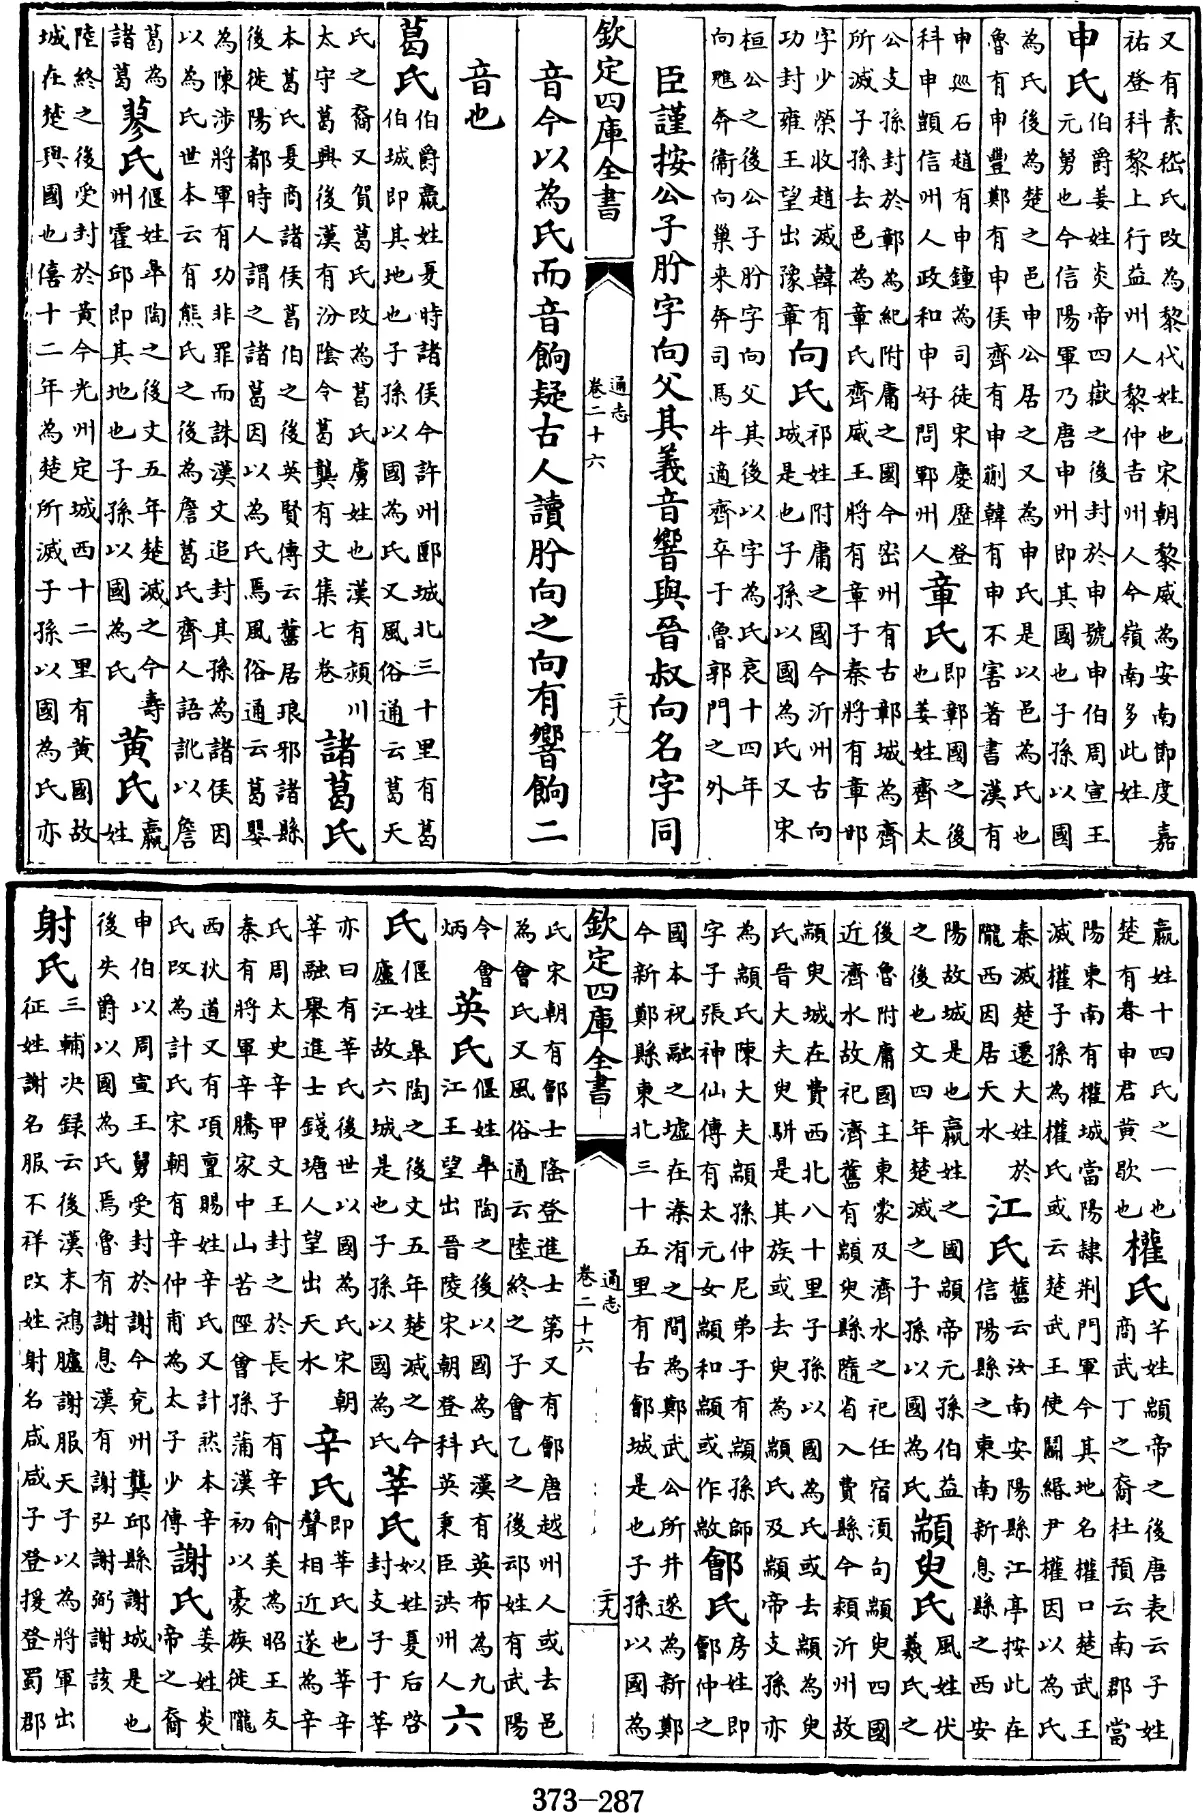 又有素嵇氏改為黎代姓也宋朝黎威為安南節度嘉
祐登科黎上行益州人黎仲吉州人今嶺南多此姓
申氏
伯爵姜姓炎帝四嶽之後封於申號申伯周宣王
元舅也今信陽軍乃唐申州即其國也子孫以國
為氏後為楚之邑申公居之又為申氏是以邑為氏也
魯有申豐鄭有申侯齊有申蒯韓有申不害著書漢有
申廵石趙有申鐘為司徒宋慶歴登
科申顗信州人政和申好問鄆州人
章氏
即鄣國之後
也姜姓齊太
公支孫封於鄣為紀附庸之國今密州有古鄣城為齊
所滅子孫去邑為章氏齊威王將有章子秦將有章邯
字少榮收趙滅韓有
功封雍王望出豫章
向氏
祁姓附庸之國今沂州古向
城是也子孫以國為氏又宋
桓公之後公子肸字向父其後以字為氏哀十四年
向魋奔衞向巢来奔司馬牛適齊卒于魯郭門之外
臣謹按公子肸字向父其義音響與晉叔向名字同
欽定四庫全書
通志
卷二十六
二十八
音今以為氏而音餉疑古人讀肸向之向有響餉二
音也
葛氏
伯爵嬴姓夏時諸侯今許州郾城北三十里有葛
伯城即其地也子孫以國為氏又風俗通云葛天
氏之裔又賀葛氏改為葛氏虜姓也漢有潁川
太守葛興後漢有汾陰令葛龔有文集七卷
諸葛氏
本葛氏夏商諸侯葛伯之後英賢傳云舊居琅邪諸縣
後徙陽都時人謂之諸葛因以為氏焉風俗通云葛嬰
為陳涉將軍有功非罪而誅漢文追封其孫為諸侯因
以為氏世本云有熊氏之後為詹葛氏齊人語訛以詹
葛為
諸葛
蓼氏
偃姓臯陶之後文五年楚滅之今壽
州霍邱即其地也子孫以國為氏
黄氏
嬴
姓
陸終之後受封於黃今光州定城西十二里有黃國故
城在楚與國也僖十二年為楚所滅子孫以國為氏亦
嬴姓十四氏之一也
楚有春申君黄歇也
權氏
芊姓顓帝之後唐表云子姓
商武丁之裔杜預云南郡當
陽東南有權城當陽隷荆門軍今其地名權口楚武王
滅權子孫為權氏或云楚武王使鬬緡尹權因以為氏
秦滅楚遷大姓於
隴西因居天水
江氏
舊云汝南安陽縣江亭按此在
信陽縣之東南新息縣之西安
陽故城是也嬴姓之國顓帝元孫伯益
之後也文四年楚滅之子孫以國為氏
顓臾氏
風姓伏
羲氏之
後魯附庸國主東蒙及濟水之祀任宿須句顓臾四國
近濟水故祀濟舊有顓臾縣隋省入費縣今頴沂州故
顓臾城在費西北八十里子孫以國為氏或去顓為臾
氏晉大夫臾駢是其族或去臾為顓氏及顓帝支孫亦
為顓氏陳大夫顓孫仲尼弟子有顓孫師
字子張神仙傳有太元女顓和顓或作敞
鄶氏
房姓即
鄶仲之
國本祝融之墟在溱洧之間為鄭武公所并遂為新鄭
今新鄭縣東北三十五里有古鄶城是也子孫以國為
欽定四庫全書
通志
卷二十六
二十九
氏宋朝有鄶士隆登進士第又有鄶唐越州人或去邑
為會氏又風俗通云陸終之子會乙之後䢵姓有武陽
今會
炳
英氏
偃姓臯陶之後以國為氏漢有英布為九
江王望出晉陵宋朝登科英秉臣洪州人
六
氏
偃姓臯陶之後文五年楚滅之今
廬江故六城是也子孫以國為氏
莘氏
姒姓夏后啓
封支子于莘
亦曰有莘氏後世以國為氏宋朝
莘融舉進士錢塘人望出天水
辛氏
即莘氏也莘辛
聲相近遂為辛
氏周太史辛甲文王封之於長子有辛俞美為昭王友
秦有將軍辛騰家中山苦陘曾孫蒲漢初以豪族徙隴
西狄道又有項亶賜姓辛氏又計然本辛
氏改為計氏宋朝有辛仲甫為太子少傅
謝氏
姜姓炎
帝之裔
申伯以周宣王舅受封於謝今兖州龔邱縣謝城是也
後失爵以國為氏焉魯有謝息漢有謝弘謝弼謝該
射氏
三輔决録云後漢末鴻臚謝服天子以為將軍出
征姓謝名服不祥改姓射名咸咸子登援登蜀郡
373-287